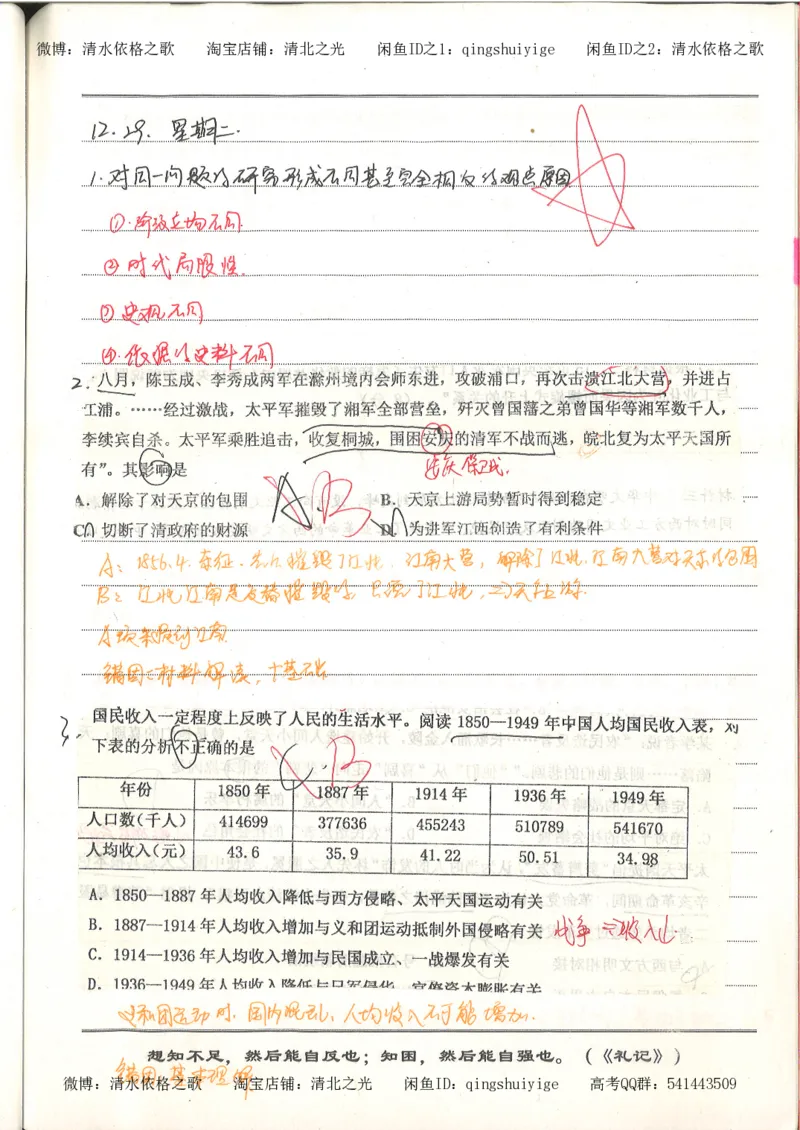 微博：清水依格之歌 淘宝店铺：清北之光 闲鱼ID之1：qingshuiyige 闲鱼ID之2：清水依格之歌
12.29. 星期二.
1.对同一问题的研究形成不同甚至完全相反的观点原因
①.阶级立场不同
②时代局限性.
③史观不同
④.依据的史料不同
2.八月，陈玉成、李秀成两军在滁州境内会师东进，攻破浦口，再次击溃江北大营，并进占
江浦。……经过激战，太平军摧毁了湘军全部营垒，歼灭曾国藩之弟曾国华等湘军数千人，
李续宾自杀。太平军乘胜追击，收复桐城，围困安庆的清军不战而逃，皖北复为太平天国所
有”。其影响是
A．解除了对天京的包围 A B B．天京上游局势暂时得到稳定
C．切断了清政府的财源 D．为进军江西创造了有利条件
A：1856.4. 摧毁了江北、江南大营，解除了江北.江南大营对天京的包围
B：
A项
错因：材料解读，+基础
3.国民收入一定程度上反映了人民的生活水平。阅读 1850—1949 年中国人均国民收入表，对
下表的分析不正确的是 C. B
年份 1850 年 1887 年 1914 年 1936 年 1949 年
人口数（千人） 414699 377636 455243 510789 541670
人均收入（元） 43.6 35.9 41.22 50.51 34.98
A．1850—1887 年人均收入降低与西方侵略、太平天国运动有关
B．1887—1914 年人均收入增加与义和团运动抵制外国侵略有关 战争⇒收入少
C．1914—1936 年人均收入增加与民国成立、一战爆发有关
D．1936—1949 年人均收入降低与日军侵华、官僚资本膨胀有关
义和团运动时.国内混乱，人均收入不可能增加.
想知不足，然后能自反也；知困，然后能自强也。（《礼记》）
错因：基本理解
微博：清水依格之歌 淘宝店铺：清北之光 闲鱼ID：qingshuiyige 高考QQ群：541443509